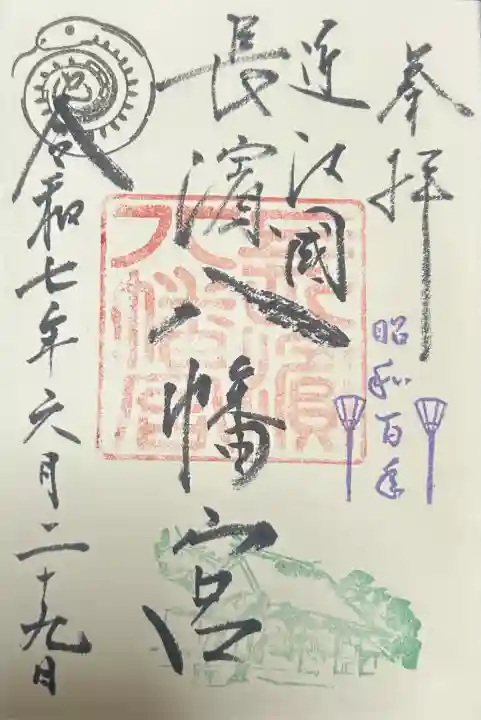 奉拝
近江國
長濱八幡宮
昭和百年
巳
令和七年六月二十九日
長濱八幡宮